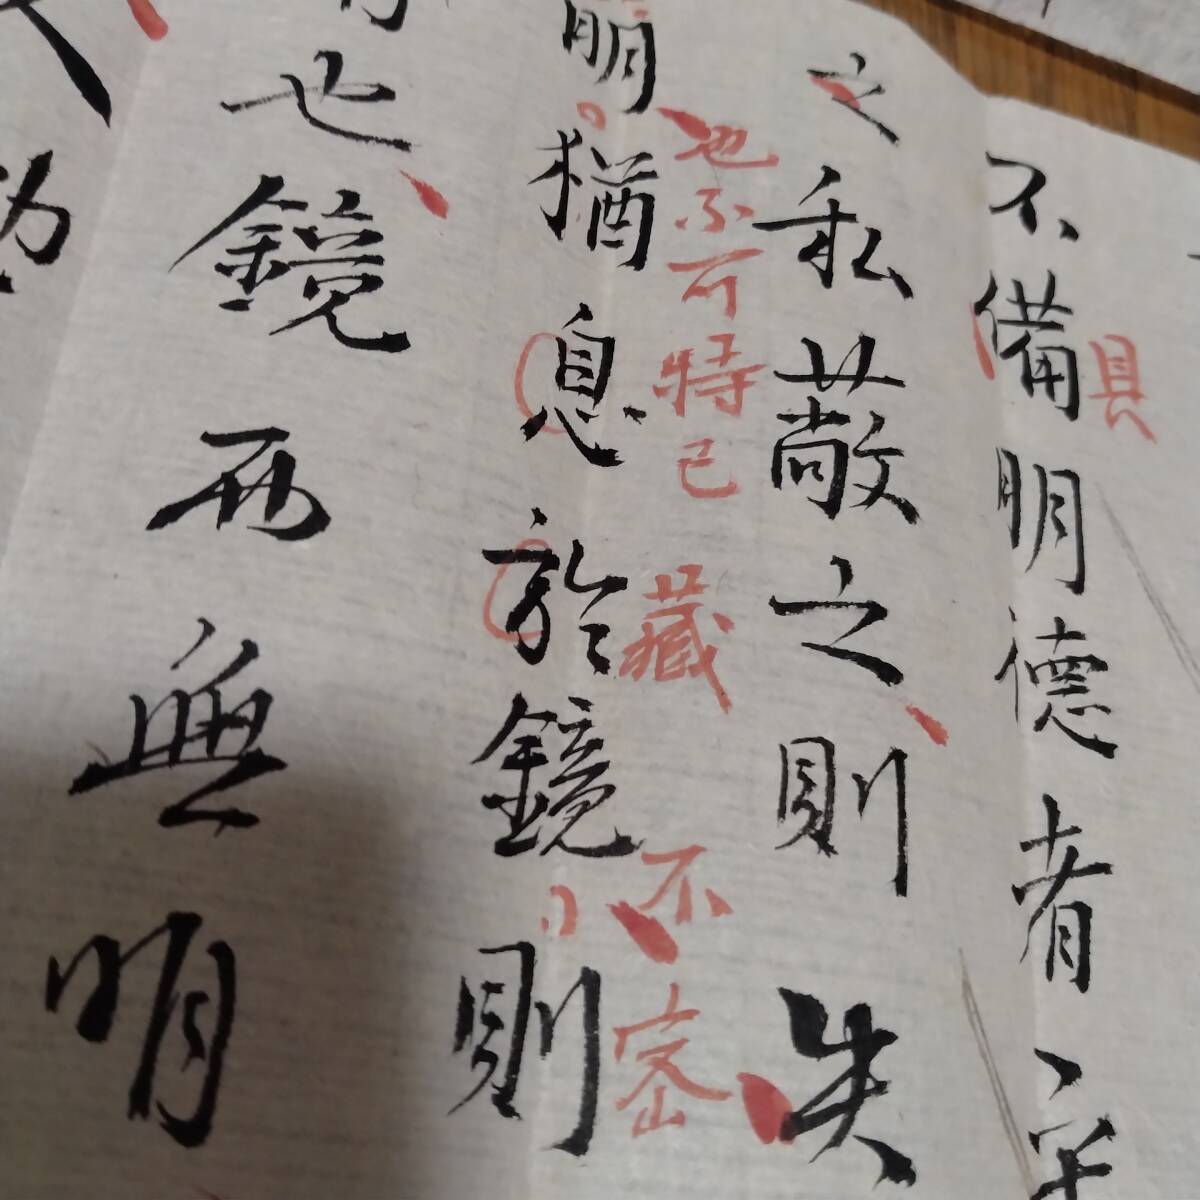 不備明德者
具
之私蔽之則失
也不可特己
藏
不
密
明猶息於鏡則
也鏡而無明